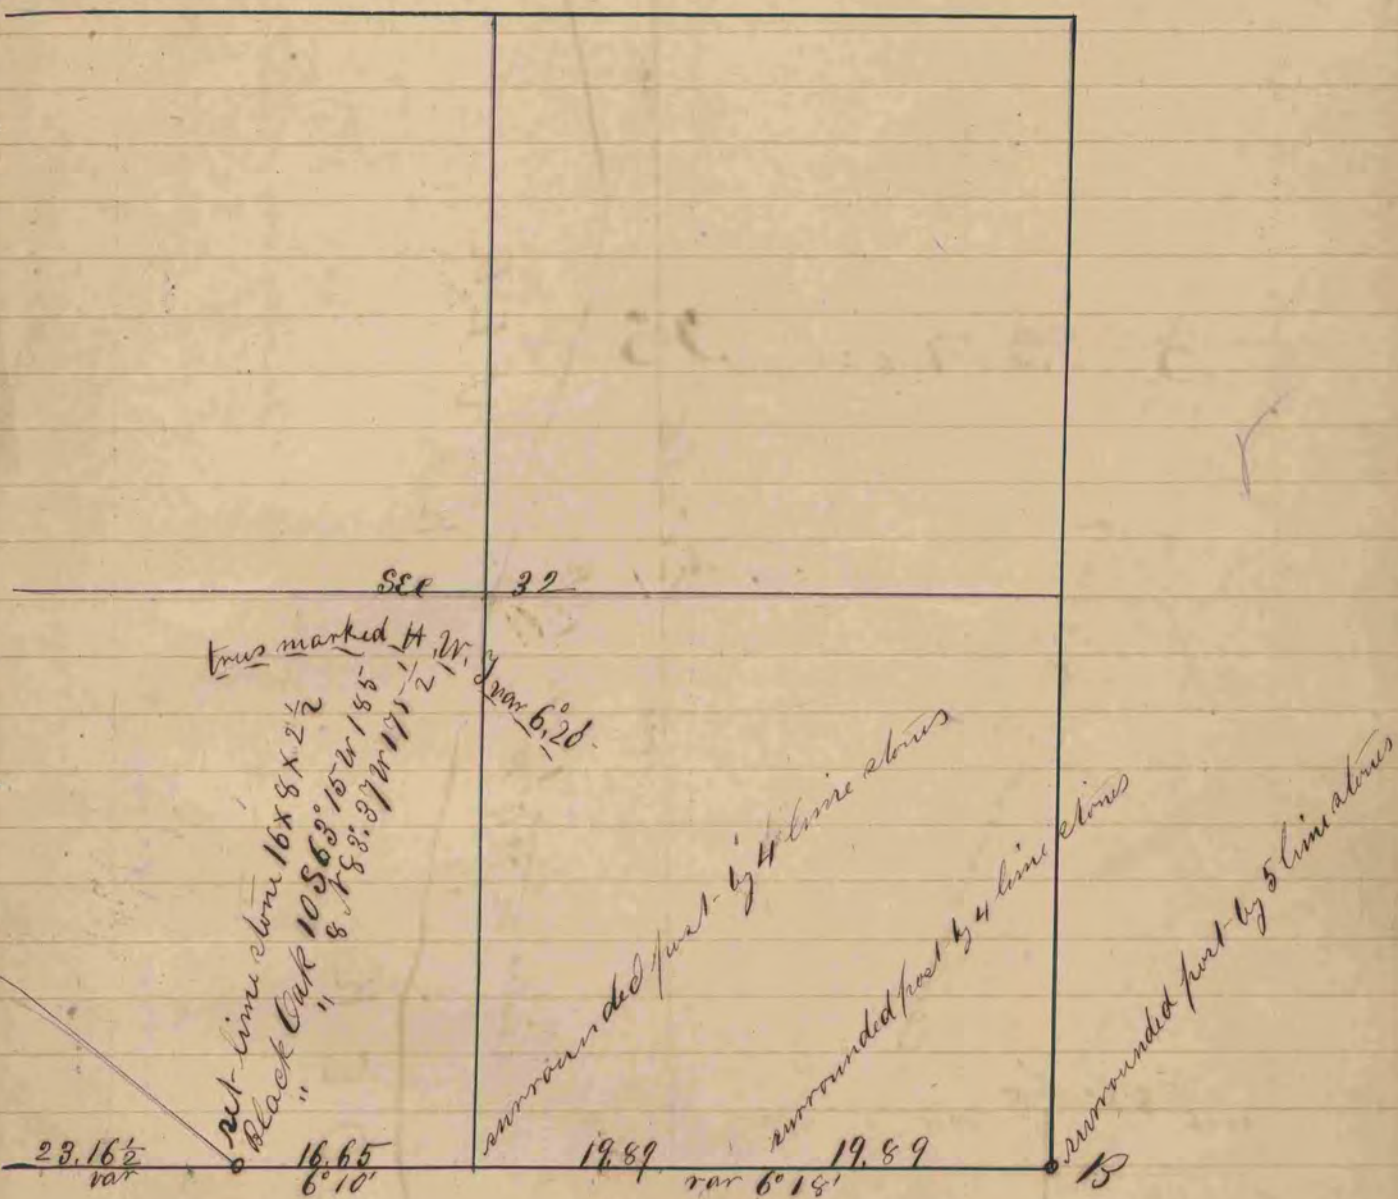 SEC 32
trees marked H. W. Y
var 6° 20
set lime stone 16 x 8 x 2 1/2
Black Oak 10 S 63° 15 W 185
" " 8 N 83° 37 W 175 1/2
surrounded post by 4 lime stones
surrounded post by 4 lime stones
surrounded post by 5 lime stones
23.16 1/2 16.65 19.89 19.89 B
var 6° 10' var 6° 18'